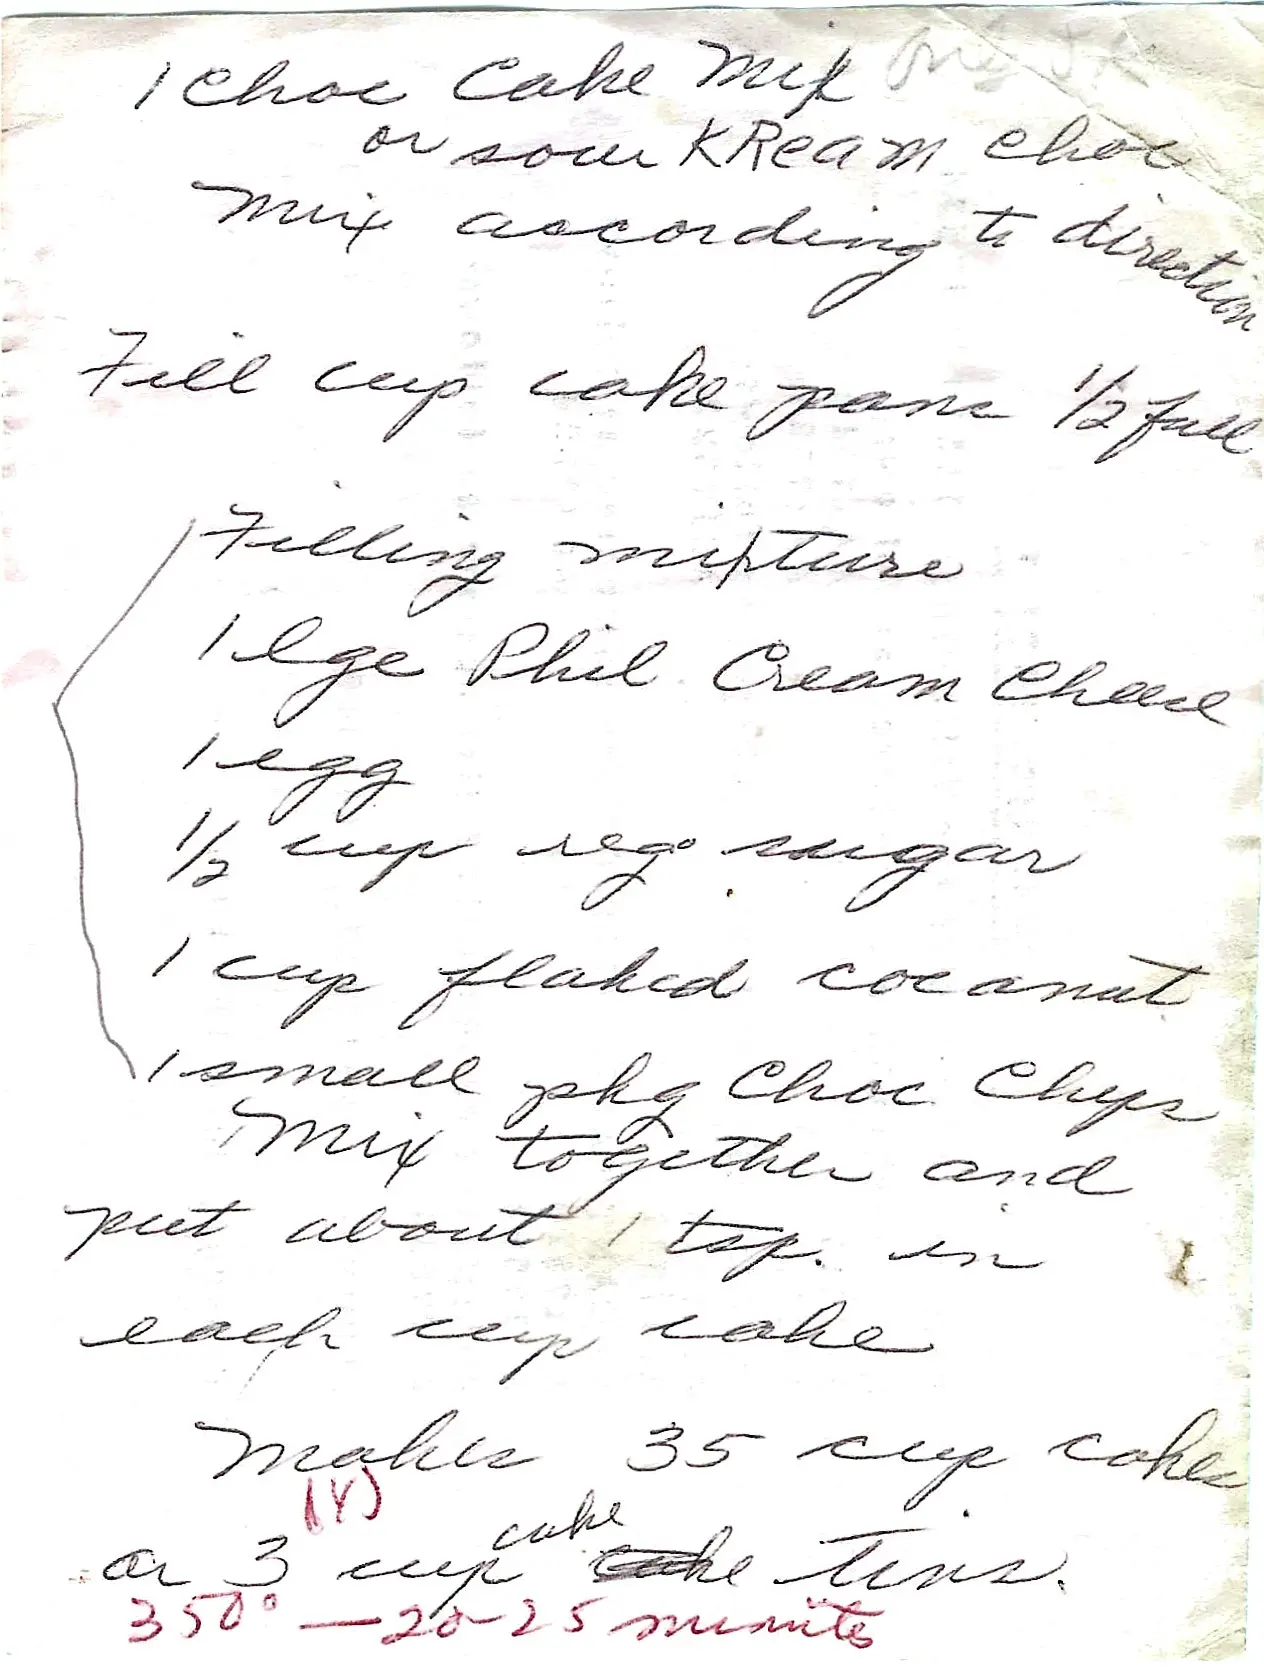 1 Choc Cake Mix
or sour KReam choc
Mix according to direction
Fill cup cake pans 1/2 full
Filling mixture
1 lge Phil Cream Cheese
1 egg
1/2 cup reg. sugar
1 cup flaked cocanut
1 small pkg Choc Chips
Mix together and
put about 1 tsp. in
each cup cake
Makes 35 cup cakes
(4)
cake
or 3 cup tins.
350° — 20-25 minutes